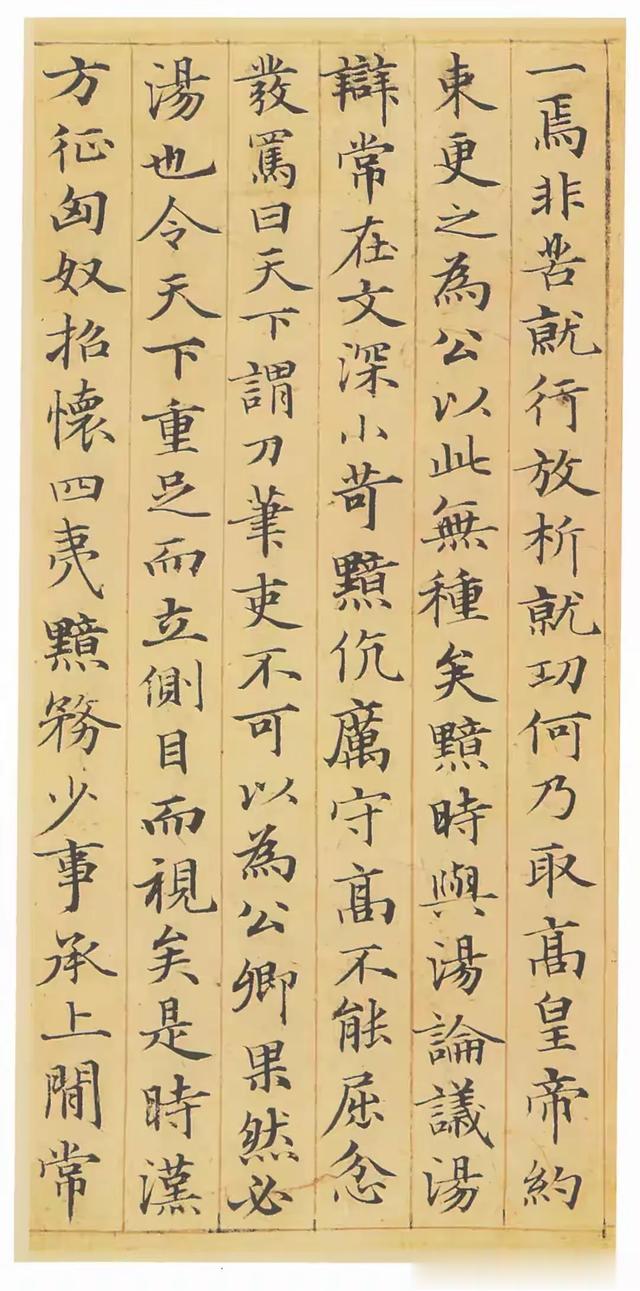 一焉非苦就行放析就功何乃取高皇帝約
束更之為公以此無種矣黯時與湯論議湯
辯常在文深小苛黯伉厲守高不能屈忿
發罵曰天下謂刀筆吏不可以為公卿果然必
湯也令天下重足而立側目而視矣是時漢
方征匈奴招懷四夷黯務少事承上間常